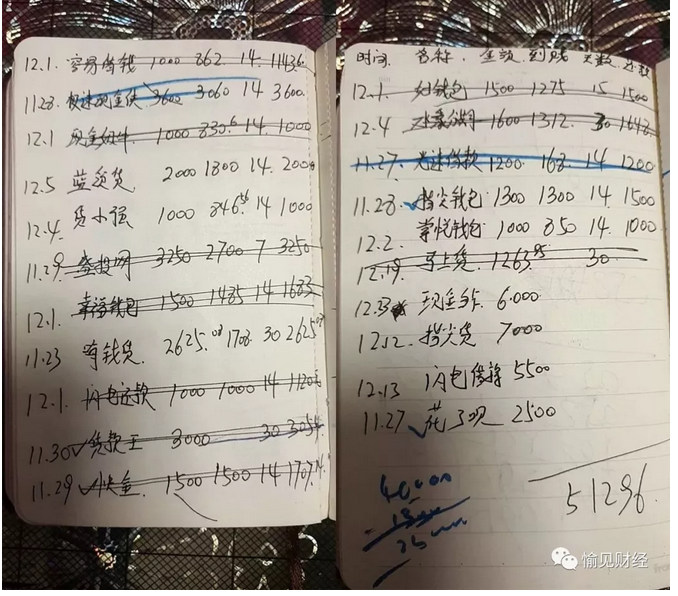 12.1. 容易借钱 1000 862. 14. 1143.6
11.28. 极速现金侠 3600 3060 14 3600.
12.1 现金 1000 830.6 14. 1000
12.5 蓝 贷 2000 1800 14. 2000
12.4. 贷小强 1000 846.56 14 1000
11.29. 投网 3250 2700 7 3250
12.1. 幸福钱包 1500 1485 14 1683
11.23 有钱贷. 2625. 1708. 30 2625
12.1. 闪电还款 1000 1000 14 1120
11.30 贷款王 3000 30 3054
11.29 快金. 1500 1500 14 1707.
时间. 名称. 金额. 到账 天数. 还款
12.1. 钱包 1500 1275 15 1500
12.4 1600 1312. 30 1648
11.27. 光速借款 1200. 168. 14 1200
11.28. 指尖钱包 1300 1300 14. 1500
12.2. 掌悦钱包 1000 850 14. 1000
12.19. 马上贷. 1263. 30.
12.3 现金 6000
12.12. 指尖贷 7000
12.13 闪电借 5500
11.27 花了呗 2500
51296.
40000
愉见财经